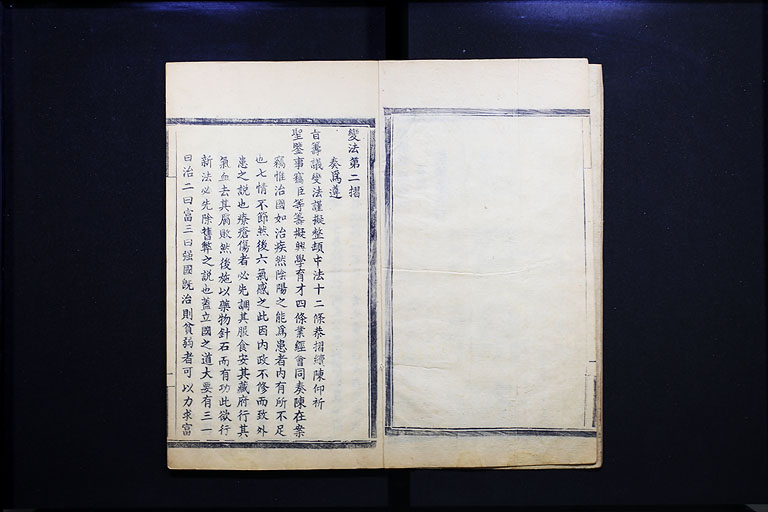 變法第二摺
奏爲遵
旨籌議變法謹擬整頓中法十二條恭摺續陳仰祈
聖鑒事竊臣等籌擬興學育才四條業經會同奏陳在案
竊惟治國如治疾然陰陽之能爲患者內有所不足
也七情不節然後六氣感之此因內政不修而致外
患之説也療瘡傷者必先調其服食安其藏府行其
氣血去其腐敗然後施以藥物針石而有功此欲行
新法必先除舊弊之説也蓋立國之道大要有三一
曰治二曰富三曰强國既治則貧弱者可以力求富